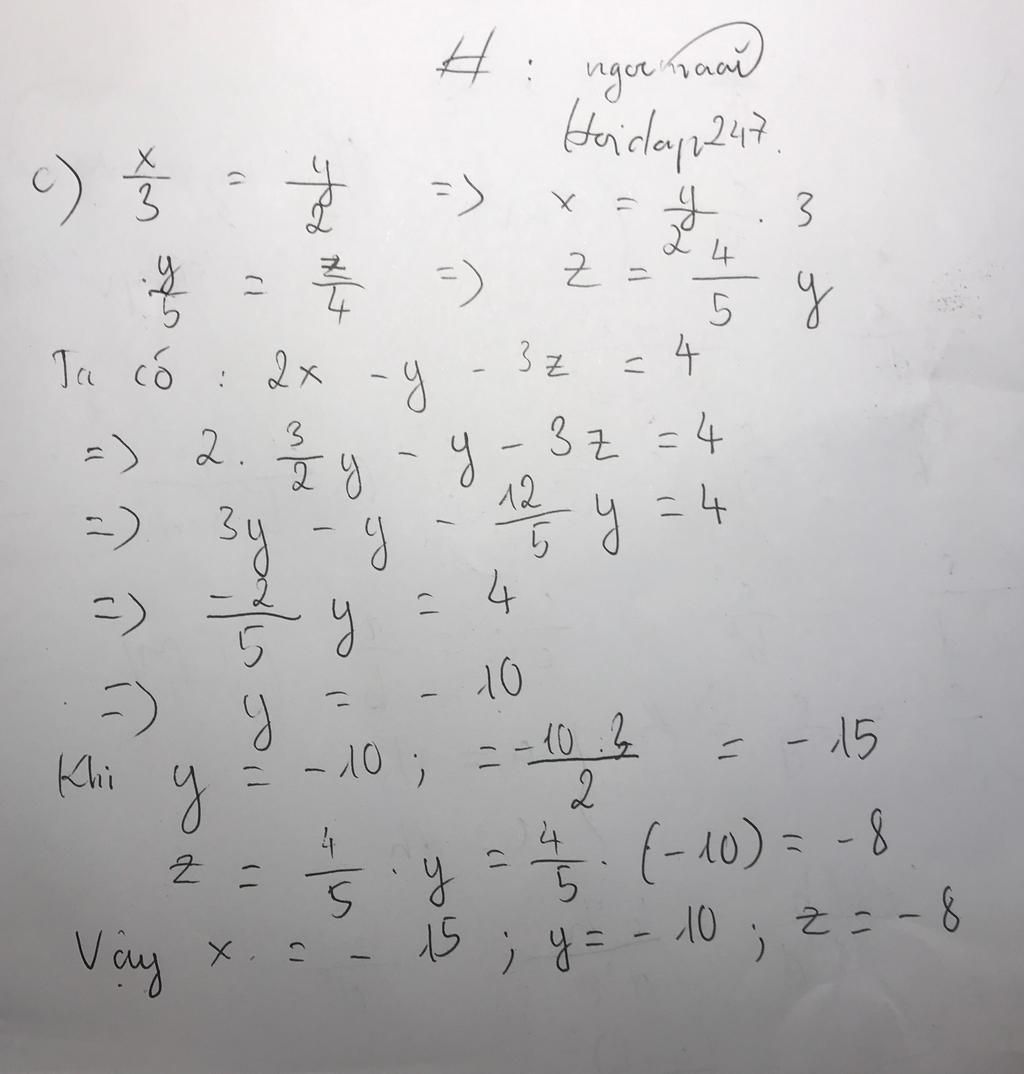 H :
Hoidap247.
c) x/3 = y/2 => x = y/2 . 3
y/5 = z/4 => z = 4/5 y
Ta có : 2x - y - 3z = 4
=> 2. 3/2 y - y - 3z = 4
=> 3y - y - 12/5 y = 4
=> -2/5 y = 4
=> y = - 10
Khi y = -10 ; = -10 . 3/2 = - 15
z = 4/5 . y = 4/5 . (-10) = -8
Vậy x = - 15 ; y = - 10 ; z = - 8